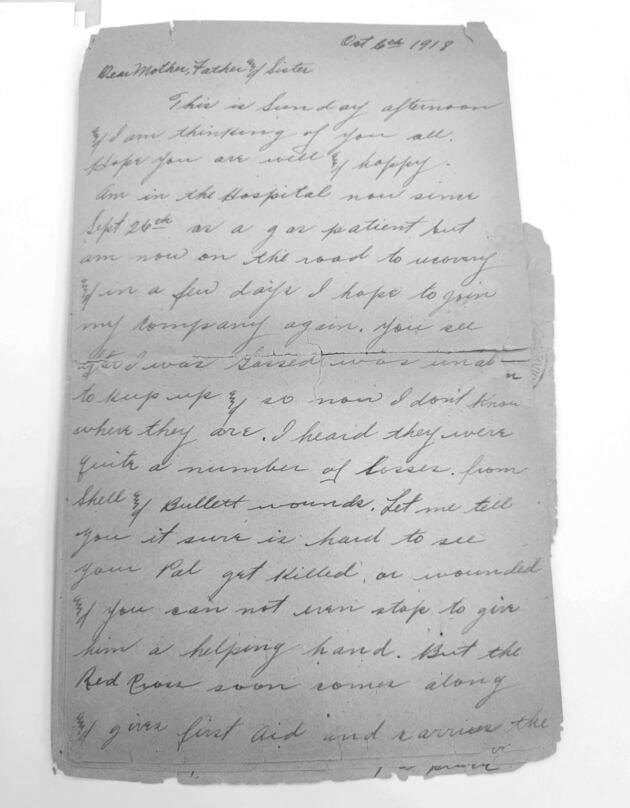 Oct 6th 1918
Dear Mother, Father & Sister
This is Sunday afternoon
& I am thinking of you all.
Hope you are well & happy.
Am in the Hospital now since
Sept 26th as a gas patient but
am now on the road to recovery
& in a few days I hope to join
my company again. You see
I was gassed was
to keep up & so now I don't know
where they are. I heard they were
quite a number of losses. from
Shell & Bullett wounds. Let me tell
you it sure is hard to see
your Pal get killed, or wounded
& you can not even stop to give
him a helping hand. But the
Red Cross soon comes along
& gives first aid and carries the